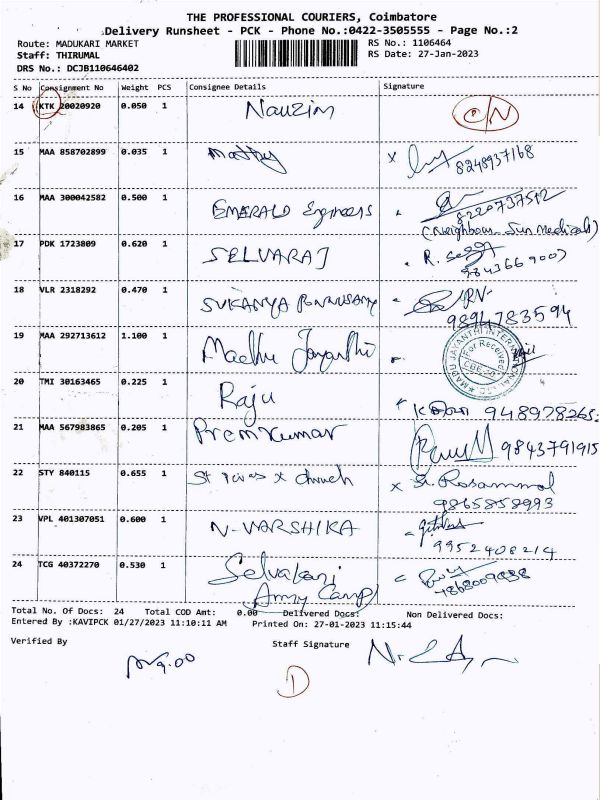 THE PROFESSIONAL COURIERS, Coimbatore
Delivery Runsheet - PCK - Phone No.:0422-3505555 - Page No.:2
Route: MADUKARI MARKET
RS No.: 1106464
Staff: THIRUMAL
RS Date: 27-Jan-2023
DRS No.: DCJB110646402
S No Consignment No Weight PCS Consignee Details Signature
14 KTK 20020920 0.050 1 Nauzim C/N
15 MAA 858702899 0.035 1 8248937168
16 MAA 300042582 0.500 1 EMERALD Engineers 8220737512
(Neighbour - Sun Medicals)
17 PDK 1723809 0.620 1 SELVARAJ R.
18 VLR 2318292 0.470 1 SUKANYA PONNUSAMY
9894783594
19 MAA 292713612 1.100 1 Madhu Jayanthi For Received
20 TMI 30163465 0.225 1 Raju
21 MAA 567983865 0.205 1 PremKumar 9843791915
22 STY 840115 0.655 1 x church x Sr. Rosammal
9865858993
23 VPL 401307051 0.600 1 N-VARSHIKA
9952408214
24 TCG 40372270 0.530 1 Selvarani
Army Camp
Total No. Of Docs: 24 Total COD Amt: 0.00 Delivered Docs: Non Delivered Docs:
Entered By :KAVIPCK 01/27/2023 11:10:11 AM Printed On: 27-01-2023 11:15:44
Verified By Staff Signature
D